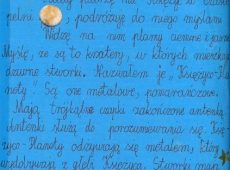 pełni, podróżuję do niego myślami
Widzę na nim plamy ciemne i jasne
Myślę, że są to kratery, w których mieszkają
dziwne stworki. Nazwałem je "Księżyco-Ha
noty". Są one metalowe, pomarańczowe.
Mają trójkątne czapki zakończone antenką.
Antenki służą do porozumiewania się. Księ-
życo-Hanoty odżywiają się metalem, który
wydobywają z głębi Księżyca. Stworki mają